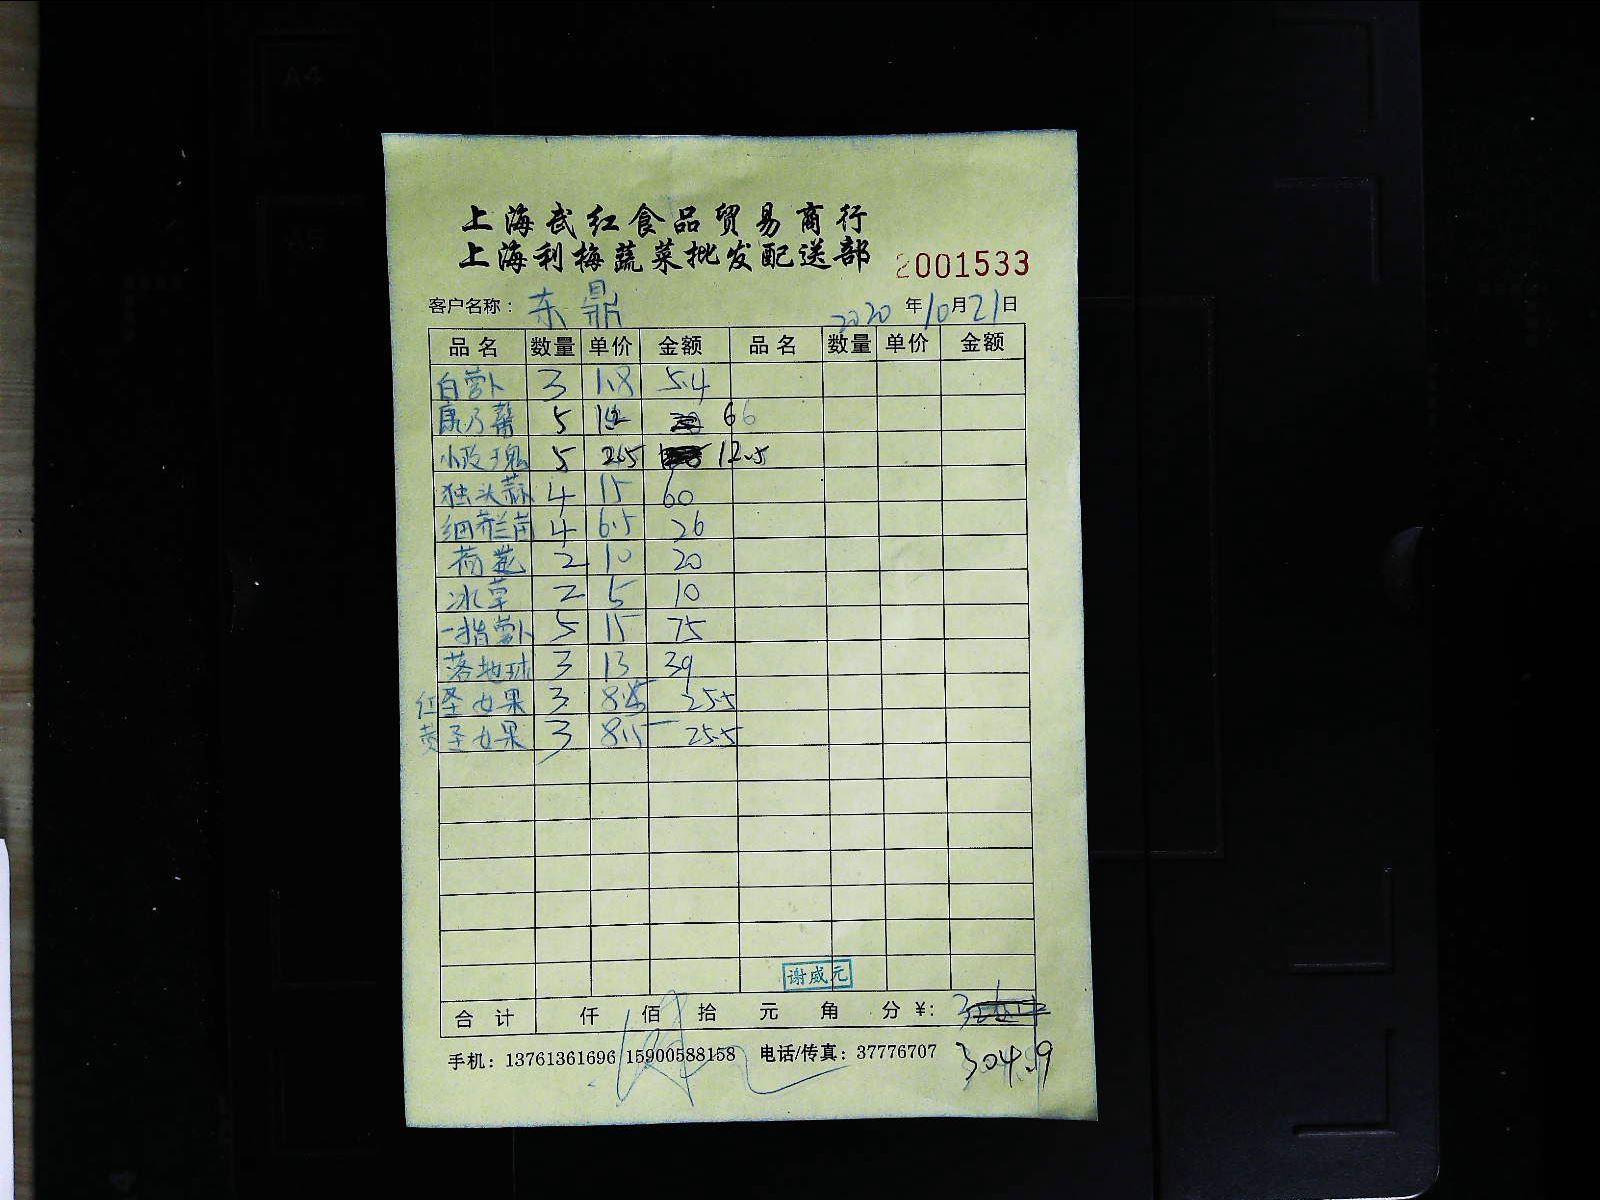 上海武红食品贸易商行
上海利梅蔬菜批发配送部 2001533
客户名称: 东鼎 2020 年 10 月 21 日
品名 数量 单价 金额 品名 数量 单价 金额
白萝卜 3 1.8 5.4
康乃馨 5 66
小玫瑰 5 12.5
独头蒜 4 15 60
细芥兰苗 4 6.5 26
荷花 2 10 20
冰草 2 5 10
一指萝卜 5 15 75
落地球 3 13 39
红圣女果 3 8.5 25.5
黄圣女果 3 8.5 25.5
谢威元
合计 仟 佰 拾 元 角 分 ¥:
手机: 13761361696 15900588158 电话/传真: 37776707 304.9